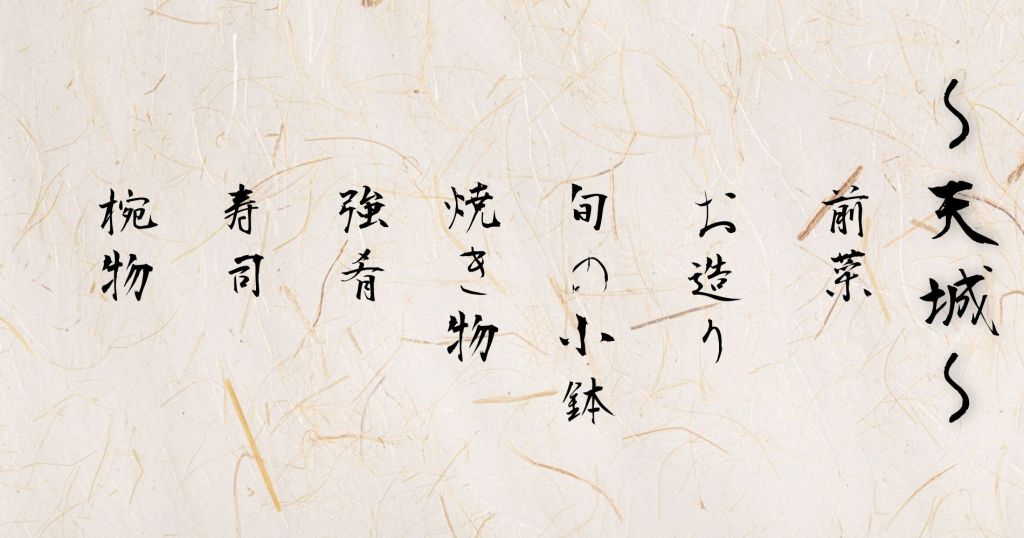 〜天城〜
前菜
お造り
旬の小鉢
焼き物
強肴
寿司
椀物